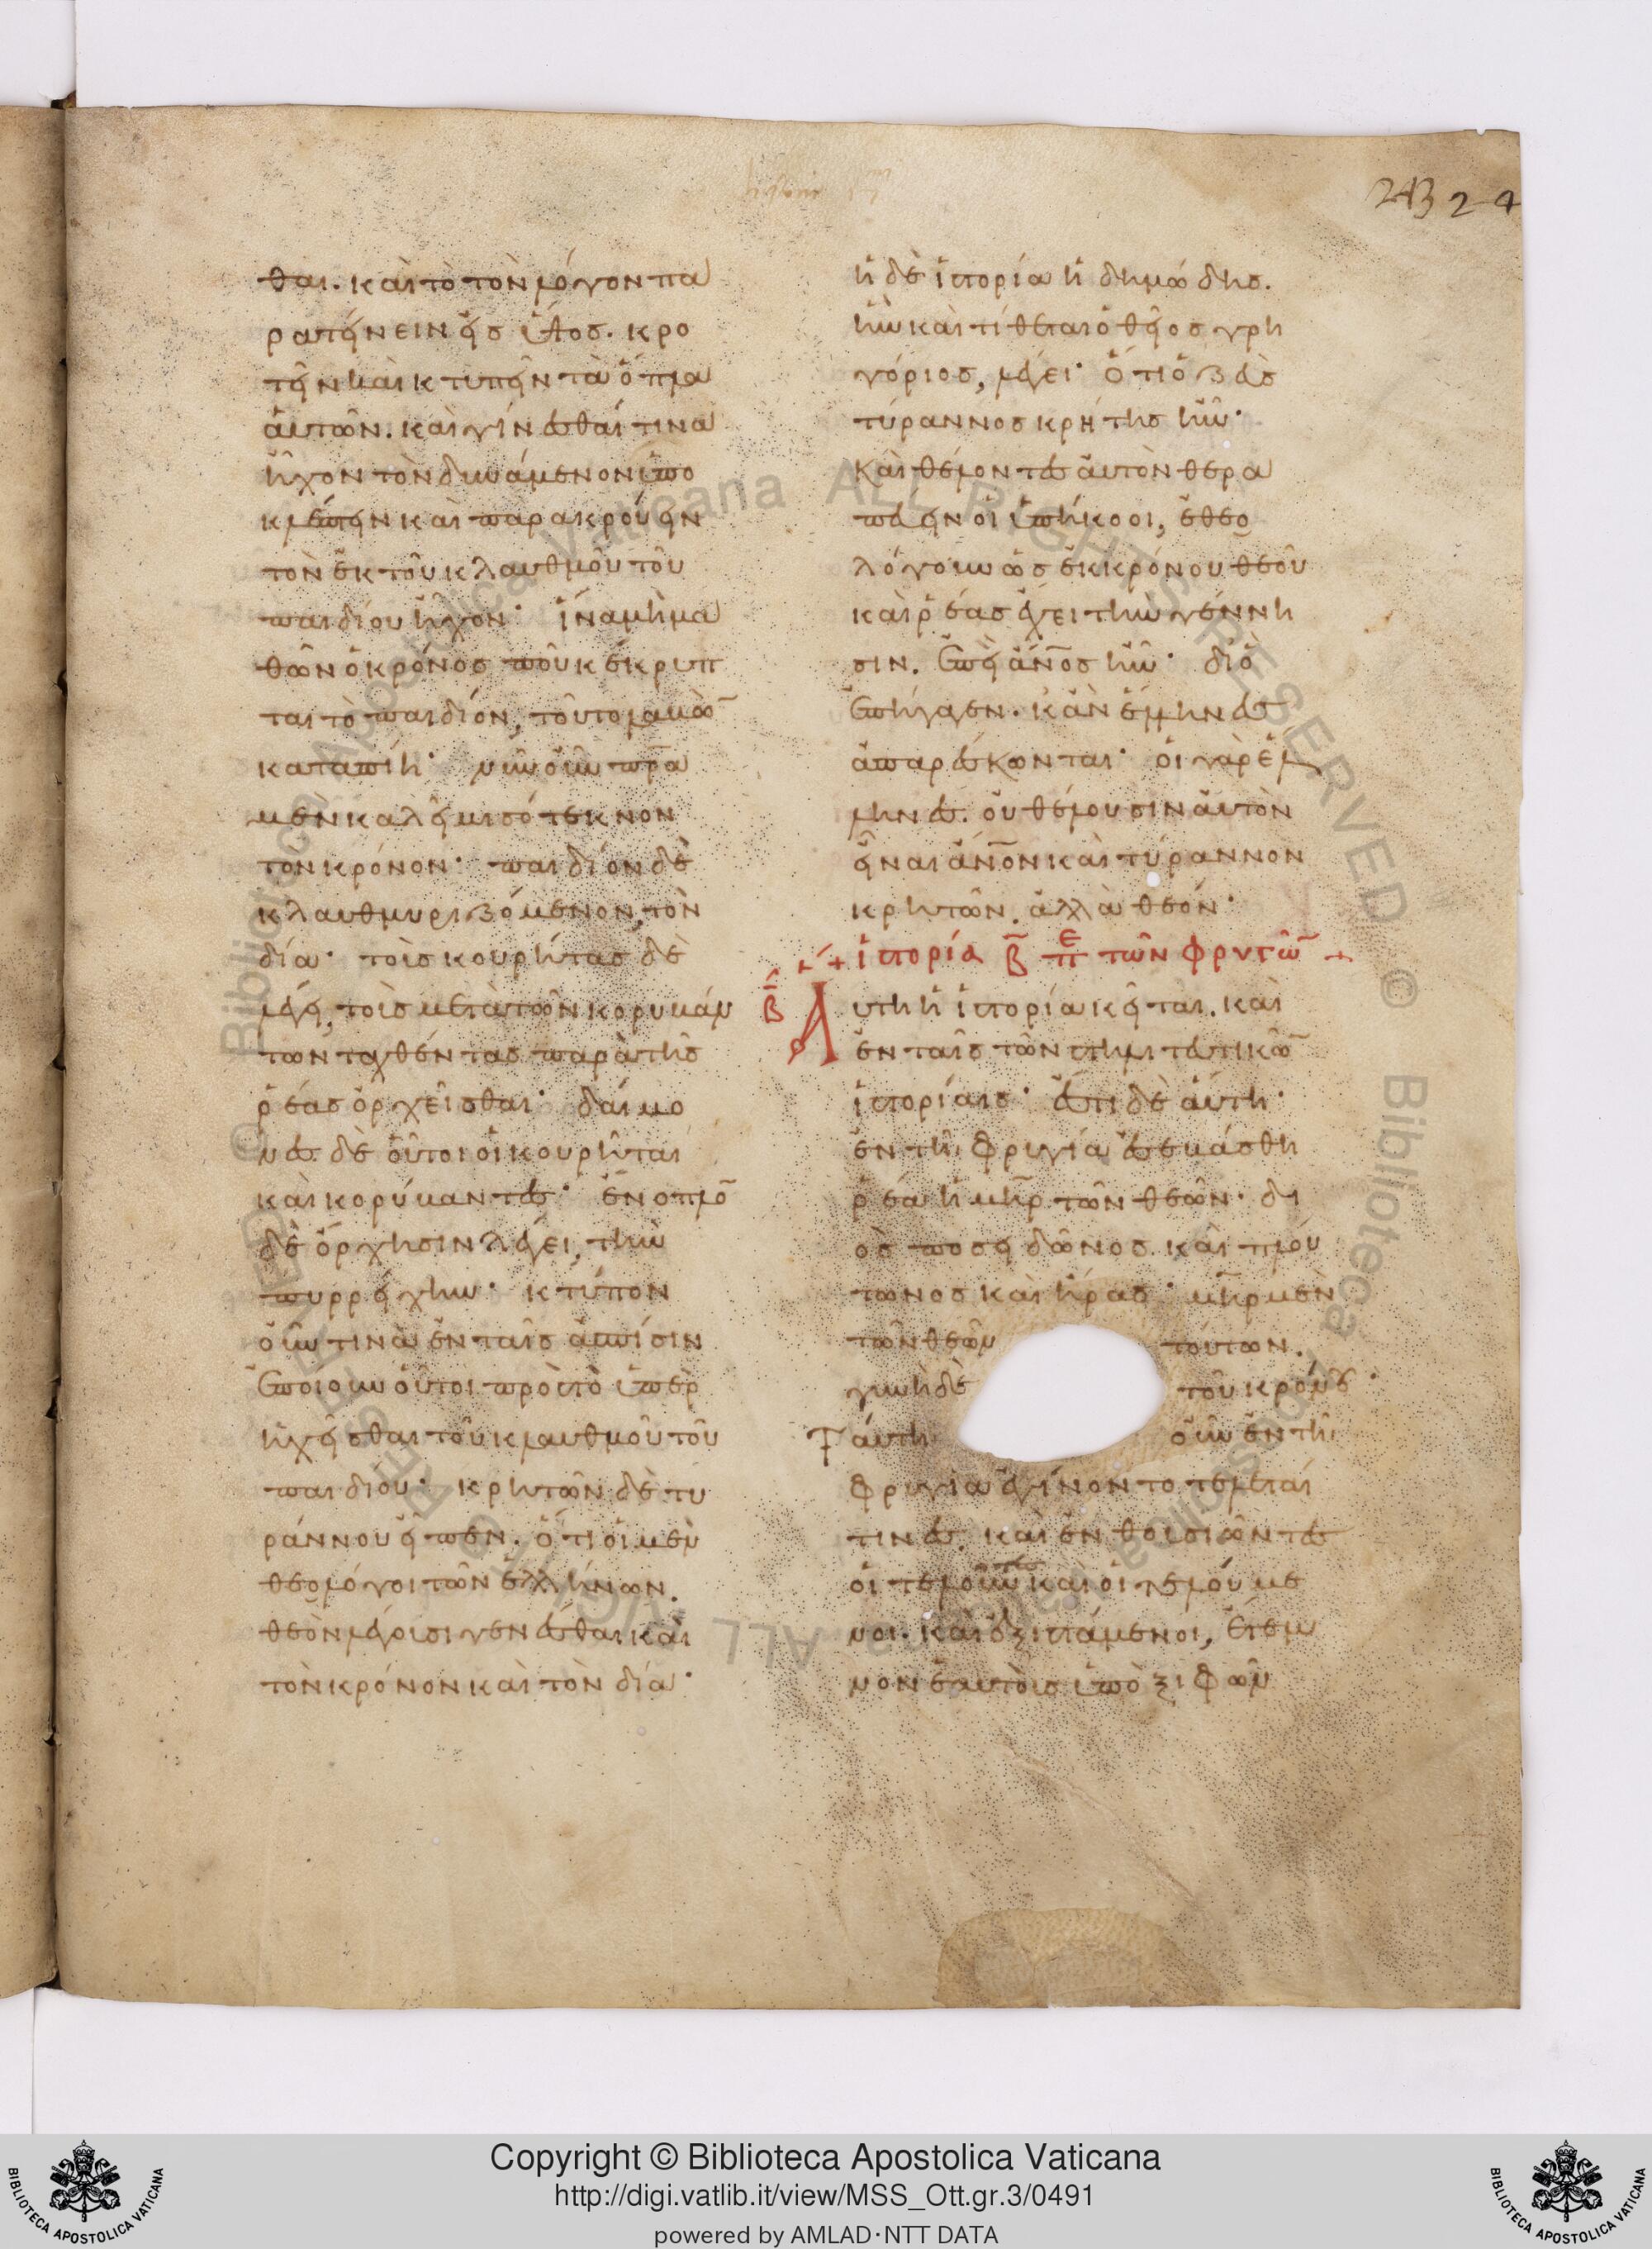 243 2 4
θαι. καὶ τὸ τὸν λόγον πα
ρατείνειν εἰς ὕλος. κρο
τεῖν καὶ κτυπεῖν τὰ ὅπλα
αὐτῶν. καὶ γίνεσθαί τινα
ἦχον τὸν δυνάμενον ὑπο
κλέπτειν καὶ παρακρούειν
τὸν ἐκ τοῦ κλαυθμοῦ τοῦ
παιδίου ἦχον· ἵνα μὴ μα
θὼν ὁ κρόνος ποῦ κέκρυπ
ται τὸ παιδίον, τοῦτο λαβὼ̅
καταπίη· νῦν οὖν πρ̅α
μὲν καλεῖ μισότεκνον
τὸν κρόνον· παιδίον δὲ
κλαυθμυριζόμενον, τὸν
δία· τοὺς κουρήτας δὲ
λέγει, τοὺς μετὰ τῶν κορυβάν
των ταχθέντας παρὰ τῆς
ῥέας ὀρχεῖσθαι· δαίμο
νες δὲ οὗτοι οἱ κουρῆται
καὶ κορύβαντες· ἔνοπλο̅
δὲ ὄρχησιν λέγει, τὴν
πυρρίχην· κτύπον
οὖν τινὰ ἐν ταῖς ἀσπίσιν
ἐποίουν οὗτοι πρὸς τὸ ὑπερ
ηχεῖσθαι τοῦ κλαυθμοῦ τοῦ
παιδίου· κρητῶν δὲ τυ
ράννου εἶπεν. ὅτι οἱ μὲν
θεολόγοι τῶν ἑλλήνων.
θεὸν λέγουσι γενέσθαι καὶ
τὸν κρόνον καὶ τὸν δία·
ἡ δὲ ἱστορία ἡ δημώδης.
ἣν καὶ τίθεται ὁ θεῖος γρη
γόριος, λέγει· ὅτι ὁ ζεὺς
τύραννος κρήτης ἦν·
καὶ θέλοντες αὐτὸν θερα
πεύειν οἱ ὑπήκοοι, ἐθεο
λόγουν ὡς ἐκ κρόνου θεοῦ
καὶ ῥέας ἔχει τὴν γέννη
σιν. ἐπεὶ ἄν̅ος ἦν· διὸ
ἐπήγαγεν. κἂν ἕλληνες
ἀπαρέσκωνται· οἱ γὰρ ἕλ
ληνες. οὐ θέλουσιν αὐτὸν
εἶναι ἄν̅ον καὶ τύραννον
κρητῶν, ἀλλὰ θεόν·
+ ἱστορία β̅ π̅ε τῶν φρυγῶ̅ +
β̅ Αὕτη ἡ ἱστορία κεῖται. καὶ
ἐν ταῖς τῶν στηλιτευτικῶ̅
ἱστορίαις· ἔστι δὲ αὕτη·
ἐν τῆ φρυγία ἐσεβάσθη
ῥέα ἡ μη̅ρ τῶν θεῶν. δι
ὸς ποσειδῶνος. καὶ πλού
τωνος καὶ ἥρας· μη̅ρ μὲν
τῶν θεῶν τούτων.
γυνὴ δὲ τοῦ κρόνου·
Ταύτη οὖν ἐν τῆ
φρυγία ἐγίνοντο τελεταί
τινες, καὶ ἐνθουσιῶντες
οἱ τελοῦντες καὶ οἱ τελούμε
νοι. καὶ ἐξιστάμενοι, ἔτεμ
νον ἑαυτοὺς ὑπὸ ξιφῶν
Copyright © Biblioteca Apostolica Vaticana
http://digi.vatlib.it/view/MSS_Ott.gr.3/0491
powered by AMLAD·NTT DATA